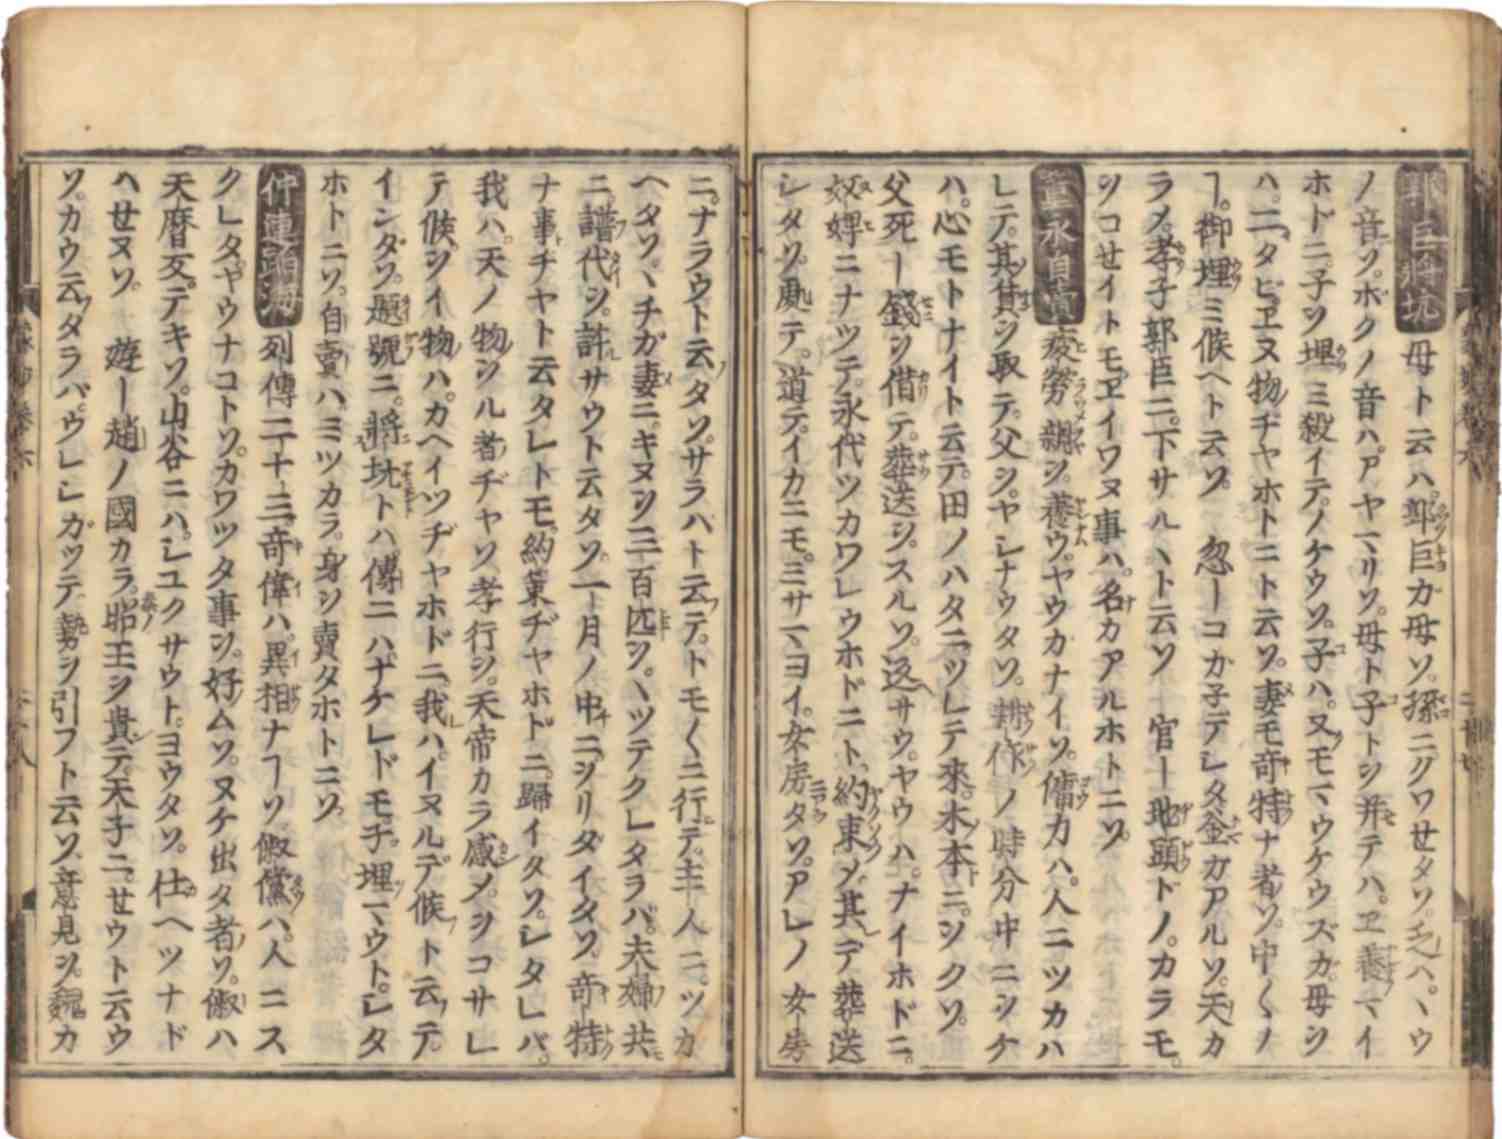 郭巨将坑　母ト云ハ。郭巨カ母ソ。孫ニクワせタソ。乏ハ。ヽウ
ノ音ソ。ボクノ音ハ。アヤマリソ。母ト子トヲ并テハ。ヱ養マイ
ホドニ。子ヲ埋ミ殺イテ。ノケウソ。子ハ。又モマウケウズガ。母ヲ
ハ。二タビヱヌ物ヂヤホトニト云ソ。妻モ奇特ナ者ソ。中〱ノ
ヿ。御埋ミ候ヘト云ソ　忽ーコカ子デレタ釜カアルソ。天カ
ラメ。孝子郭巨ニ。下サルヽト云ソ　官ー地頭ドノ。カラモ。
ヲコせイトモヱイワヌ事ハ。名カアルホトニソ。
董永自賣　疲勞親ヲ。養ウ。ヤウカナイソ。傭力ハ。人ニツカハ
レテ。其賃ヲ取テ。父ヲ。ヤレナウタソ。耕作ノ時分中ニヲケ
ハ。心モトナイト云テ。田ノハタニ。ツレテ來。木本ニ。ヲクソ。
父死ー錢ヲ借テ。葬送ヲ。スルソ。返サウ。ヤウハ。ナイホドニ。
奴婢ニナツテ。永代ツカワレウホドニト。約束メ其デ葬送
レタソ。處テ。道テ。イカニモ。ミサマヨイ。女房タソ。アレノ女房
ニ。ナラウト云タソ。サラハト云テ。トモ〱ニ行テ。主人ニ。ツカ
ヘタソ。ヽチガ妻ニ。キヌヲ三百匹ヲ。ヽツテクレタラバ。夫婦共
ニ譜代ヲ。許サウト云タソ。一月ノ中ニ。ヲリダイタソ。奇特
ナ事チヤト云タレトモ。約束ヂヤホドニ。歸イタソ。レタレバ。
我ハ。天ノ物ヲル者ヂヤソ孝行ヲ。天帝カラ感メ。ヲコサレ
テ候ヲイ物ハ。カヘイツヂヤホドニ。我ハ。イヌルデ候ト云テ。
インダソ。題號ニ。將坑トハ傳ニハナケレドモチ。埋マウト。レタ
ホトニソ。自賣ハ。ミツカラ。身ヲ賣タホトニソ。
仲連蹈海　列傳二十三。奇偉ハ。異相ナヿソ俶儻ハ。人ニス
クレタ。ヤウナコトソ。カワツタ事ヲ。好ムソ。ヌケ出タ者ソ。俶ハ
天暦反。テキソ。山谷ニハ。レユクサウト。ヨウタソ。仕ヘツナド
ハせヌソ　遊ー趙ノ國カラ。昭王ヲ貴テ。天子ニ。せウト云ウ
ソ。カウ云タラバ。ウレレガツテ勢ヲ引フト云ソ。意見ヲ。魏カ